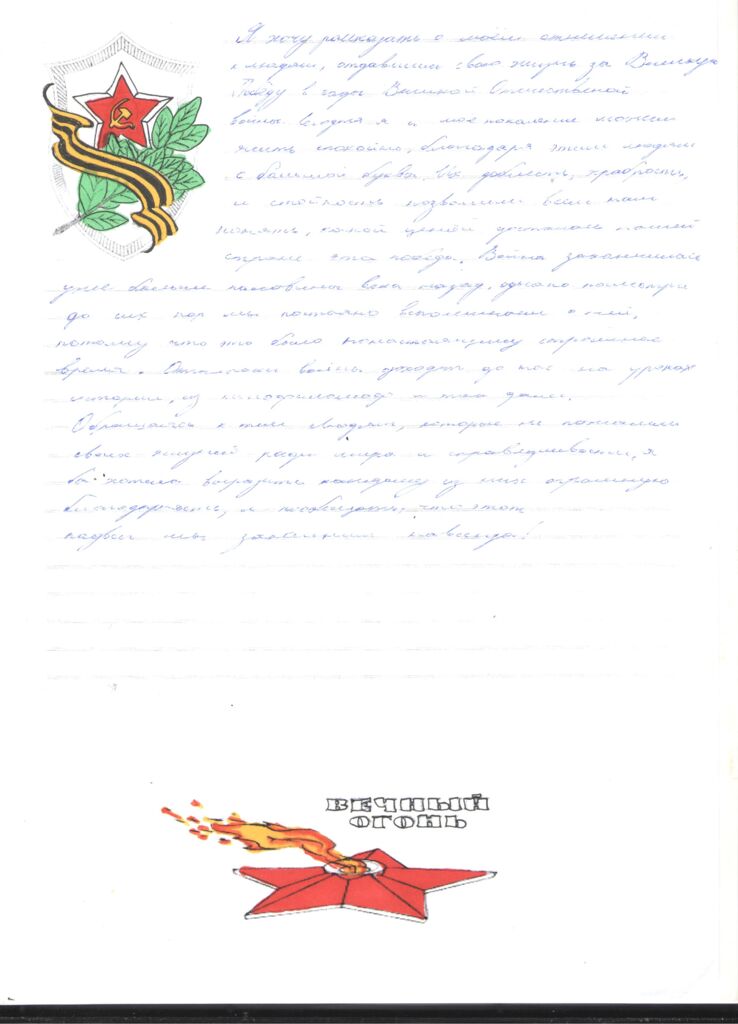 Я хочу рассказать о моём отношении
к людям, отдавшим свою жизнь за Великую
Победу в годы Великой Отечественной
войны. Сегодня я и мое поколение можем
жить спокойно, благодаря этим людям
с большой буквы. Их доблесть, храбрость,
и стойкость позволили всем нам
понять, какой ценой досталась нашей
стране эта победа. Война закончилась
уже больше половины века назад, однако
до сих пор мы постоянно вспоминаем о ней,
потому что то было по-настоящему страшное
время. Отголоски войны доходят до нас на уроках
истории, из кинофильмов и так далее.
Обращаясь к тем людям, которые не пожалели
своих жизней ради мира и справедливости, я
бы хотела выразить каждому из них огромную
благодарность, и пообещать, что этот
подвиг мы запомним навсегда!
ВЕЧНЫЙ
ОГОНЬ